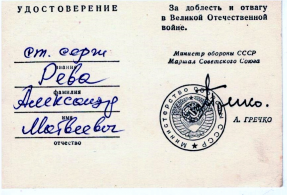 УДОСТОВЕРЕНИЕ
ст. серж
звание
Рева
фамилия
Александр
имя
Матвеевич
отчество
За доблесть и отвагу
в Великой Отечественной
войне.
Министр обороны СССР
Маршал Советского Союза
А. ГРЕЧКО